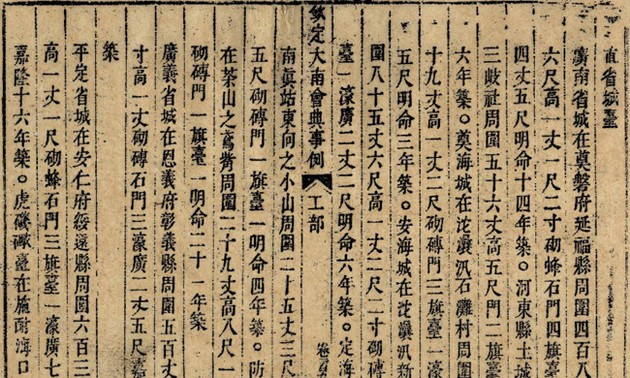 直省城臺
廣南省城在奠磐府延福縣周圍四百八
六尺高一丈一尺二寸砌蜂石門四旗臺
四丈五尺明命十四年築。河東縣土城
三岐社周圍五十六丈高五尺門二旗臺
六年築。奠海城在沱㶞汛石灘村周圍
十九丈高一丈二尺砌磚門三旗臺一濠
五尺明命三年築。安海城在沱㶞汛新
圍八十五丈六尺高一丈二尺二寸砌磚
臺一濠廣二丈二尺明命六年築。定海
欽定大南會典事例 工部
南眞站東向之小山周圍二十五丈三尺
五尺砌磚門一旗臺一明命四年築。防
在茶山之鳶觜周圍二十九丈高八尺一
砌磚門一旗臺一明命二十一年築
廣義省城在思義府彰義縣周圍五百丈
寸高一丈砌磚石門三濠廣二丈五尺嘉
築
平定省城在安仁府綏遠縣周圍六百三
高一丈一尺砌蜂石門三旗臺一濠廣七
嘉隆十六年築。虎磯礮臺在施耐海口